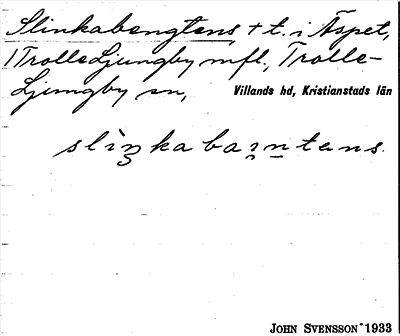 Slinkabengtens, + t. i Äspet,
1 Trolle Ljungby mfl., Trolle-
Ljungby sn, Villands hd, Kristianstads län
slìn̨kabain̠tens.
JOHN SVENSSON 1933